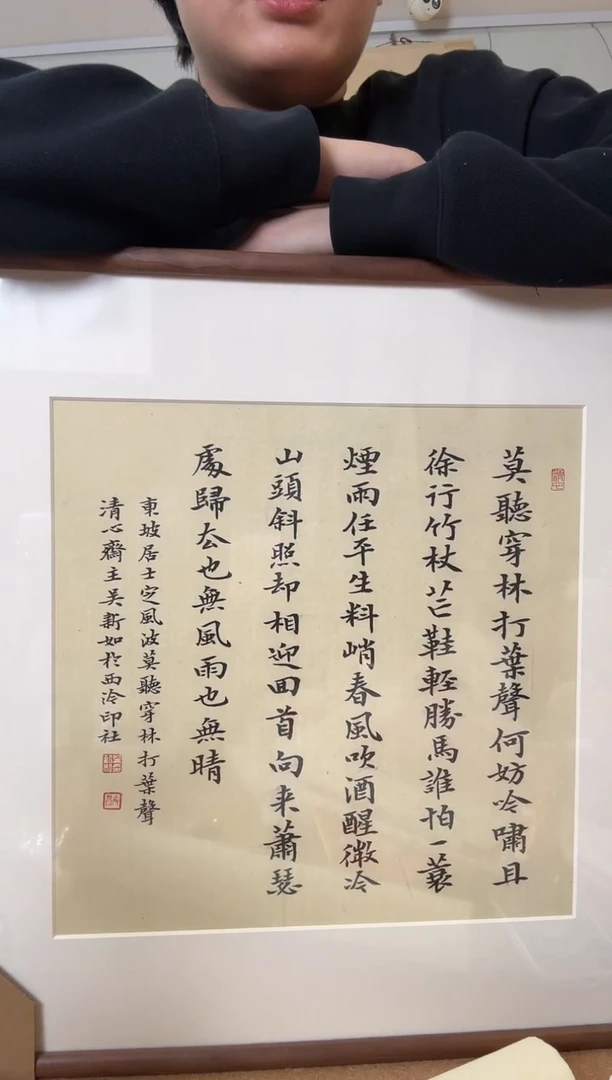 莫聽穿林打葉聲何妨吟嘯且
徐行竹杖芒鞋輕勝馬誰怕一蓑
煙雨任平生料峭春風吹酒醒微冷
山頭斜照却相迎回首向来蕭瑟
處歸去也無風雨也無晴
東坡居士定風波莫聽穿林打葉聲
清心齋主吴新如於西泠印社